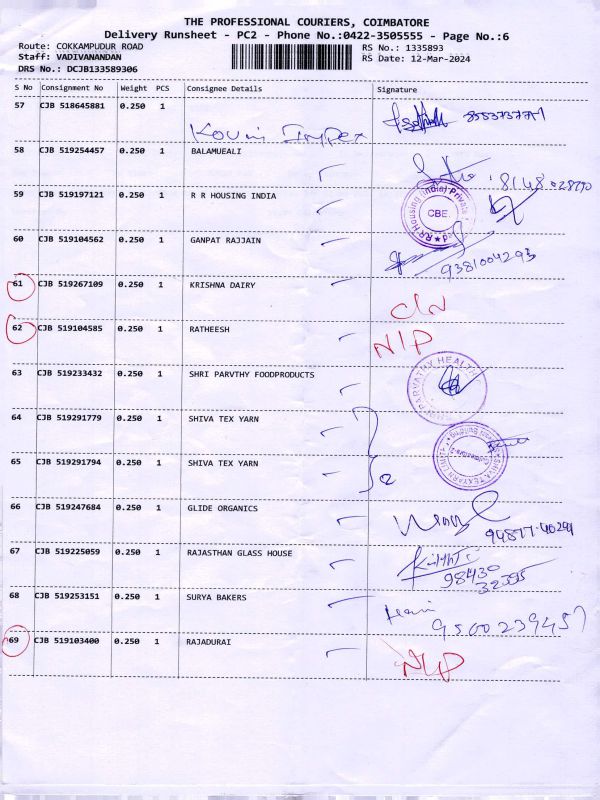 THE PROFESSIONAL COURIERS, COIMBATORE
Delivery Runsheet - PC2 - Phone No.:0422-3505555 - Page No.:6
Route: COKKAMPUDUR ROAD
RS No.: 1335893
Staff: VADIVANANDAN
RS Date: 12-Mar-2024
DRS No.: DCJB133589306
S No Consignment No Weight PCS Consignee Details Signature
57 CJB 518645881 0.250 1
Kovui Impex
58 CJB 519254457 0.250 1 BALAMUEALI
59 CJB 519197121 0.250 1 R R HOUSING INDIA
CBE.
60 CJB 519104562 0.250 1 GANPAT RAJJAIN
9381004293
61 CJB 519267109 0.250 1 KRISHNA DAIRY
62 CJB 519104585 0.250 1 RATHEESH
N/P
63 CJB 519233432 0.250 1 SHRI PARVTHY FOODPRODUCTS
64 CJB 519291779 0.250 1 SHIVA TEX YARN
65 CJB 519291794 0.250 1 SHIVA TEX YARN
2
66 CJB 519247684 0.250 1 GLIDE ORGANICS
94877-40294
67 CJB 519225059 0.250 1 RAJASTHAN GLASS HOUSE
98430
32395
68 CJB 519253151 0.250 1 SURYA BAKERS
9500239457
69 CJB 519103400 0.250 1 RAJADURAI
N/P